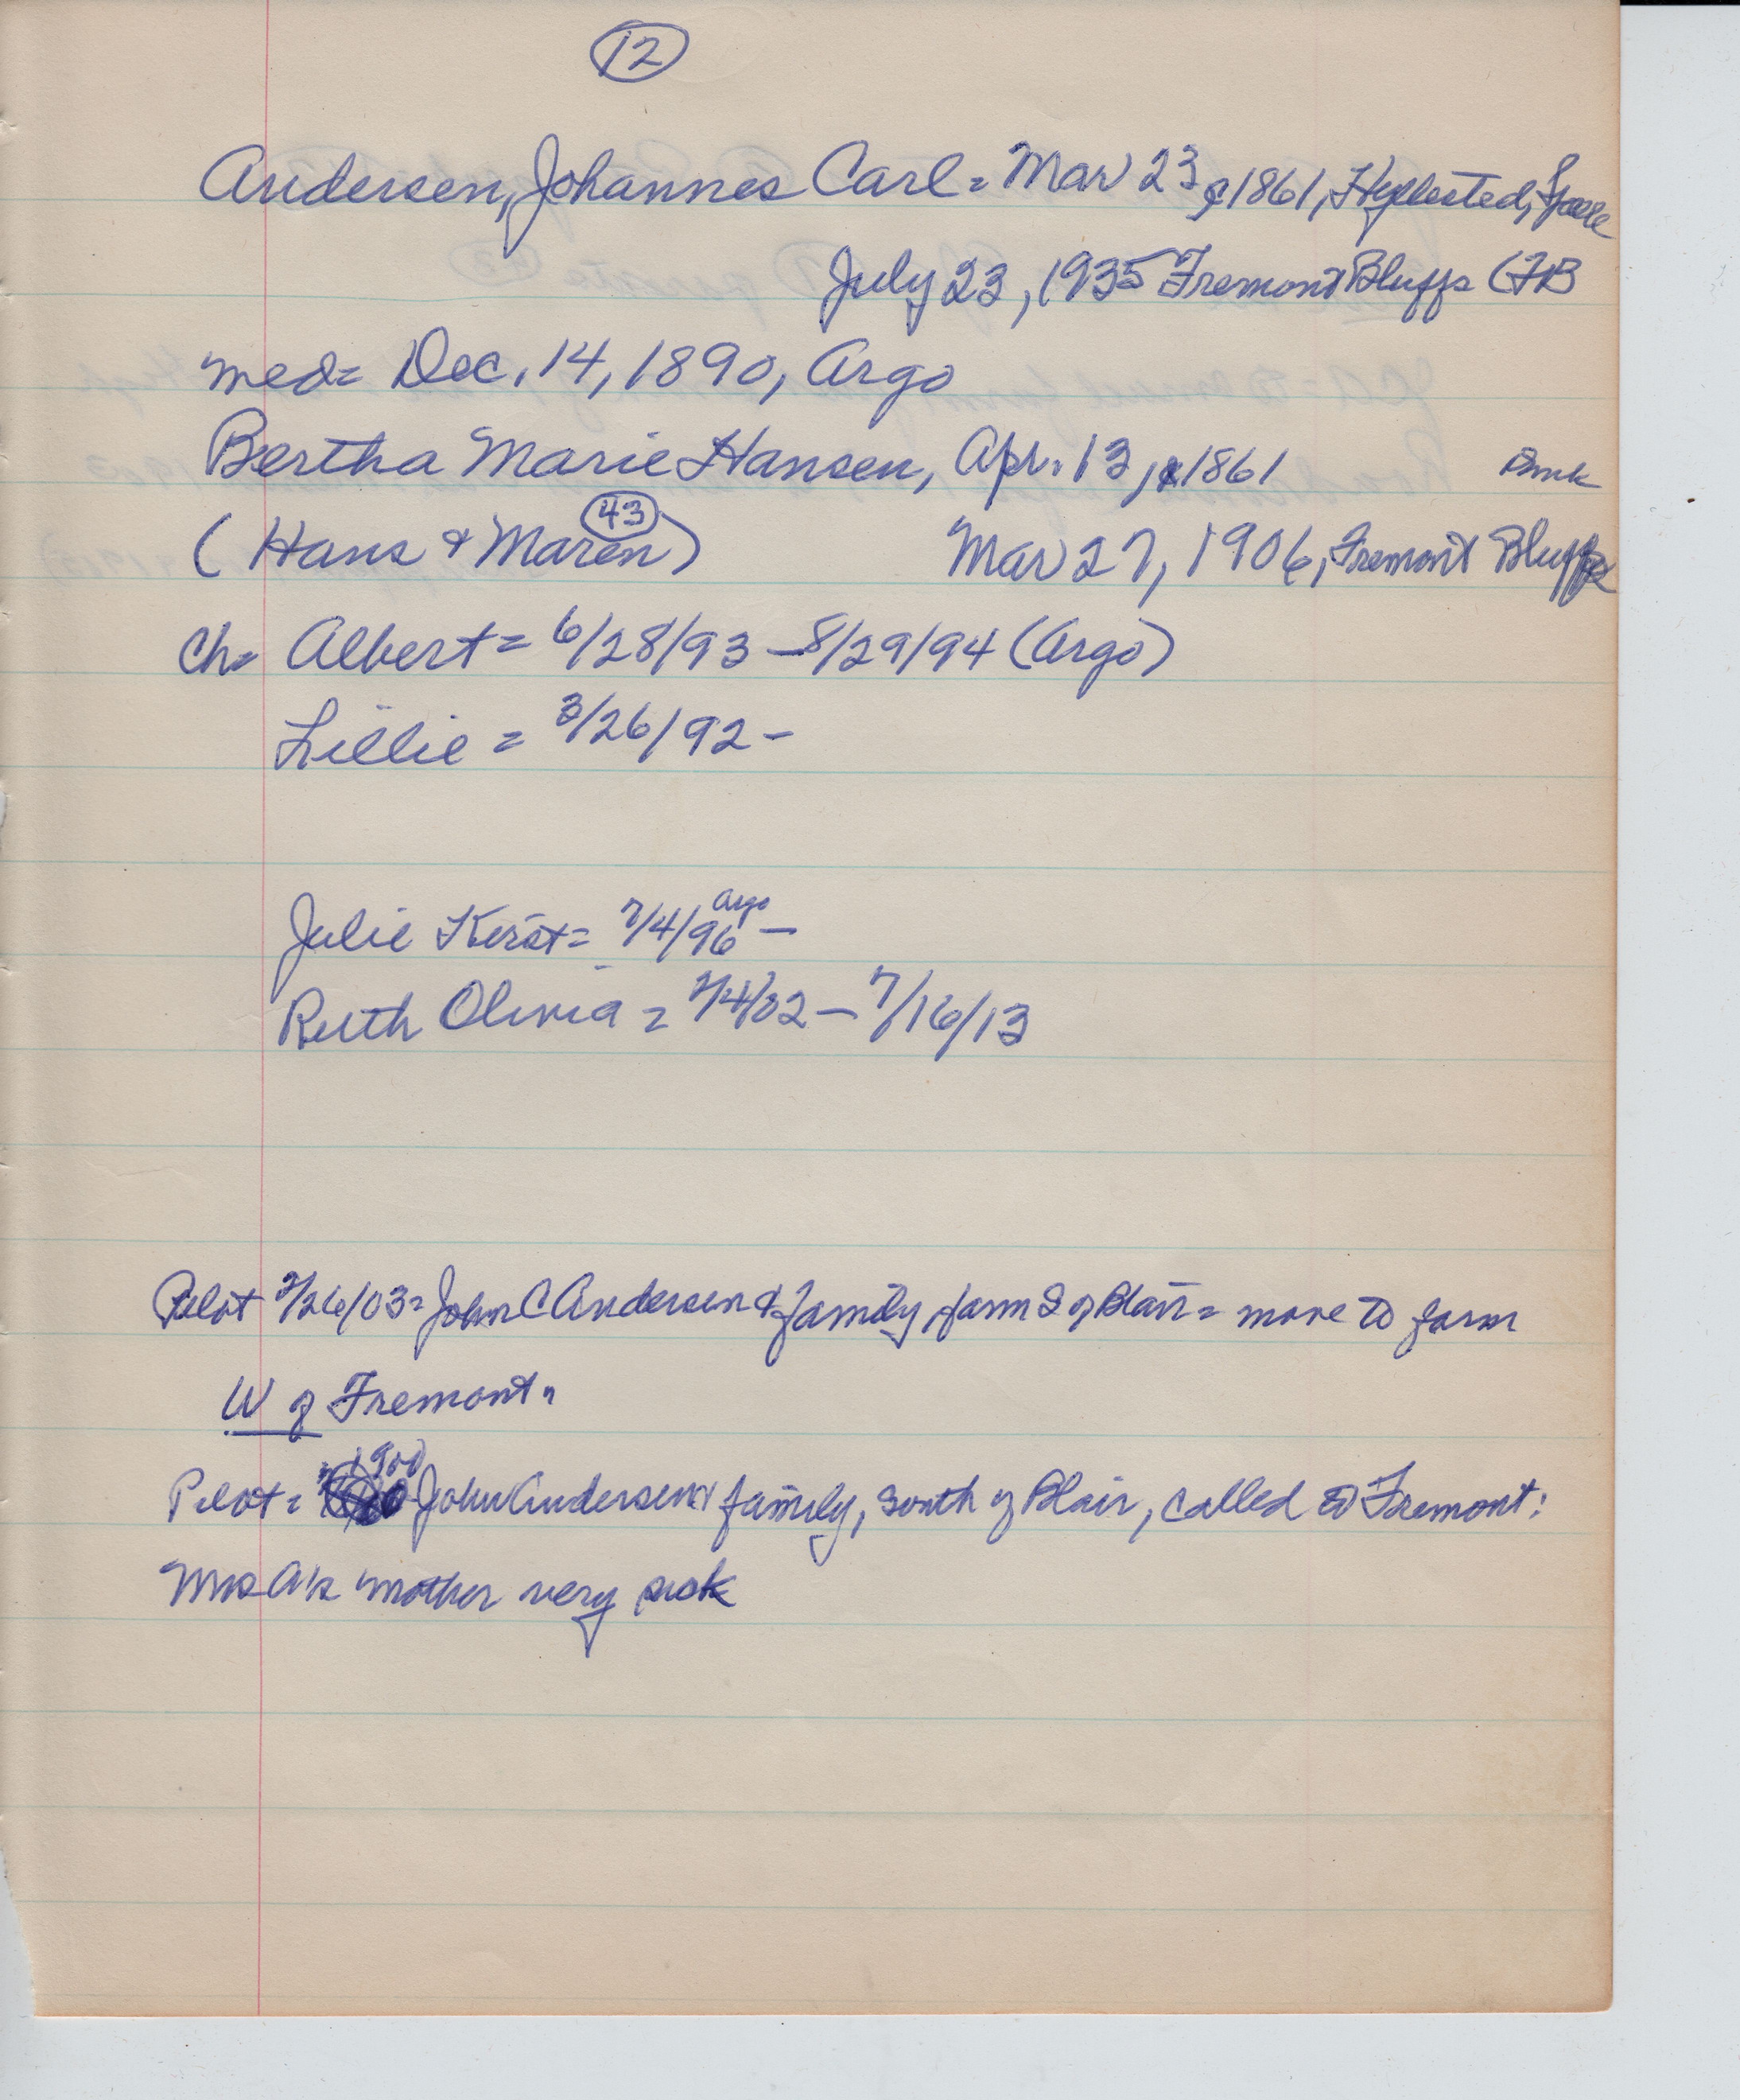 12
Andersen, Johannes Carl = Mar 23, 1861,
July 23, 1935 Fremont Bluffs (FB
med= Dec. 14, 1890, Argo
Bertha Marie Hansen, Apr. 13, 1861 Dmk
43
(Hans & Maren) Mar 27, 1906, Fremont Bluffs
Ch= Albert = 6/28/93 - 8/29/94 (Argo)
Lillie = 3/26/92 -
Argo
Julie Kerst= 7/4/96 -
Ruth Olivia = - 7/16/13
Pilot 2/26/03= John C Andersen & family, farm S of Blair = move to farm
W of Fremont.
1900
Pilot = John Andersen & family, south of Blair, called to Fremont:
Mrs A's mother very sick